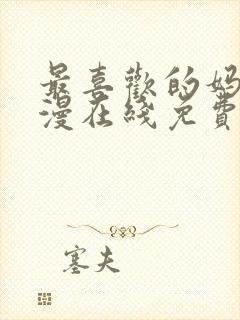 最喜歡的媽
漫在綫免費
塞夫